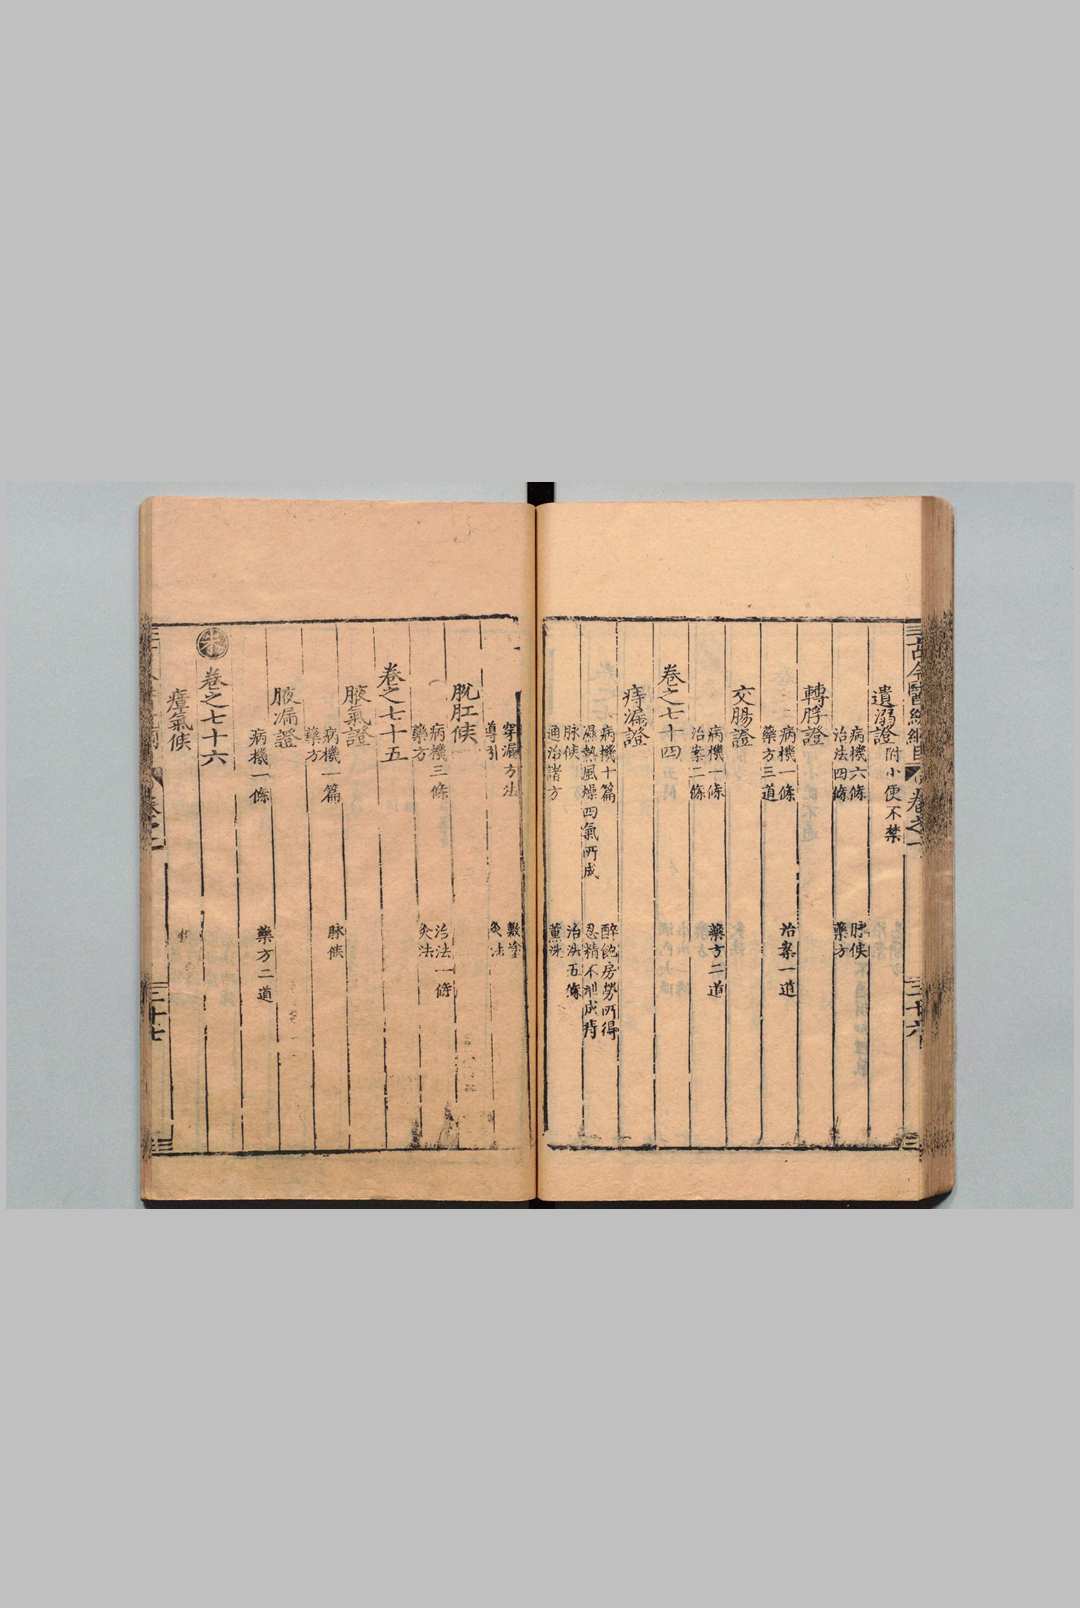 遺溺證附小便不禁
病機六條 脉候
治法四條 藥方
轉脬證
病機一條 治案一道
藥方三道
交腸證
病機一條 藥方二道
治案二條
卷之七十四
痔漏證
病機十篇 醉飽房勞所得
濕熱風燥四氣所成 忍精不泄成痔
脉候 治法五條
通治諸方 熏洗
穿漏方法 敷塗
導引 灸法
脫肛候
病機三條 治法一條
藥方 灸法
卷之七十五
腋氣證
病機一篇 脉候
藥方
腋漏證
病機一條 藥方二道
卷之七十六
瘴氣候
二十六
二十七